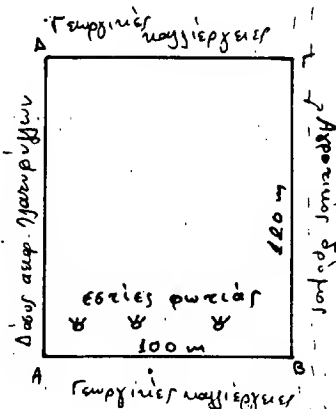 Γεωργικές καλλιέργειες
Δ
Γ
Δάσος αειφ. πλατυφύλλων
Αγροτικός δρόμος
120 m
εστίες φωτιάς
100 m
Α
Β
Γεωργικές καλλιέργειες